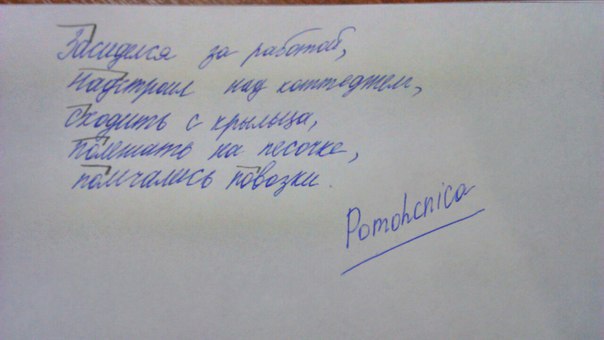 Засиделся за работой,
надстроил над коттеджем,
сходить с крыльца,
полежать на песочке,
помчались повозки.
Pomohcnica